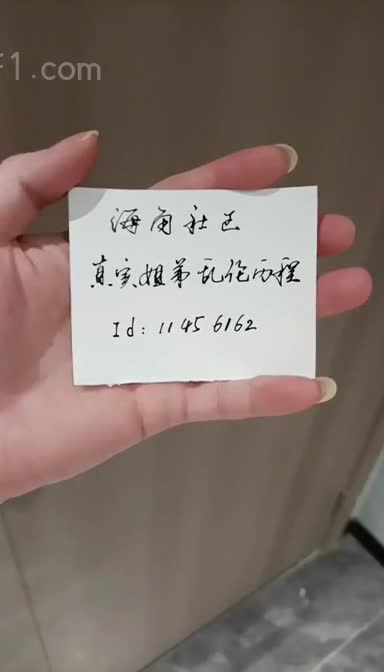 f1.com
海角社区
真实姐弟乱伦历程
Id: 11456162